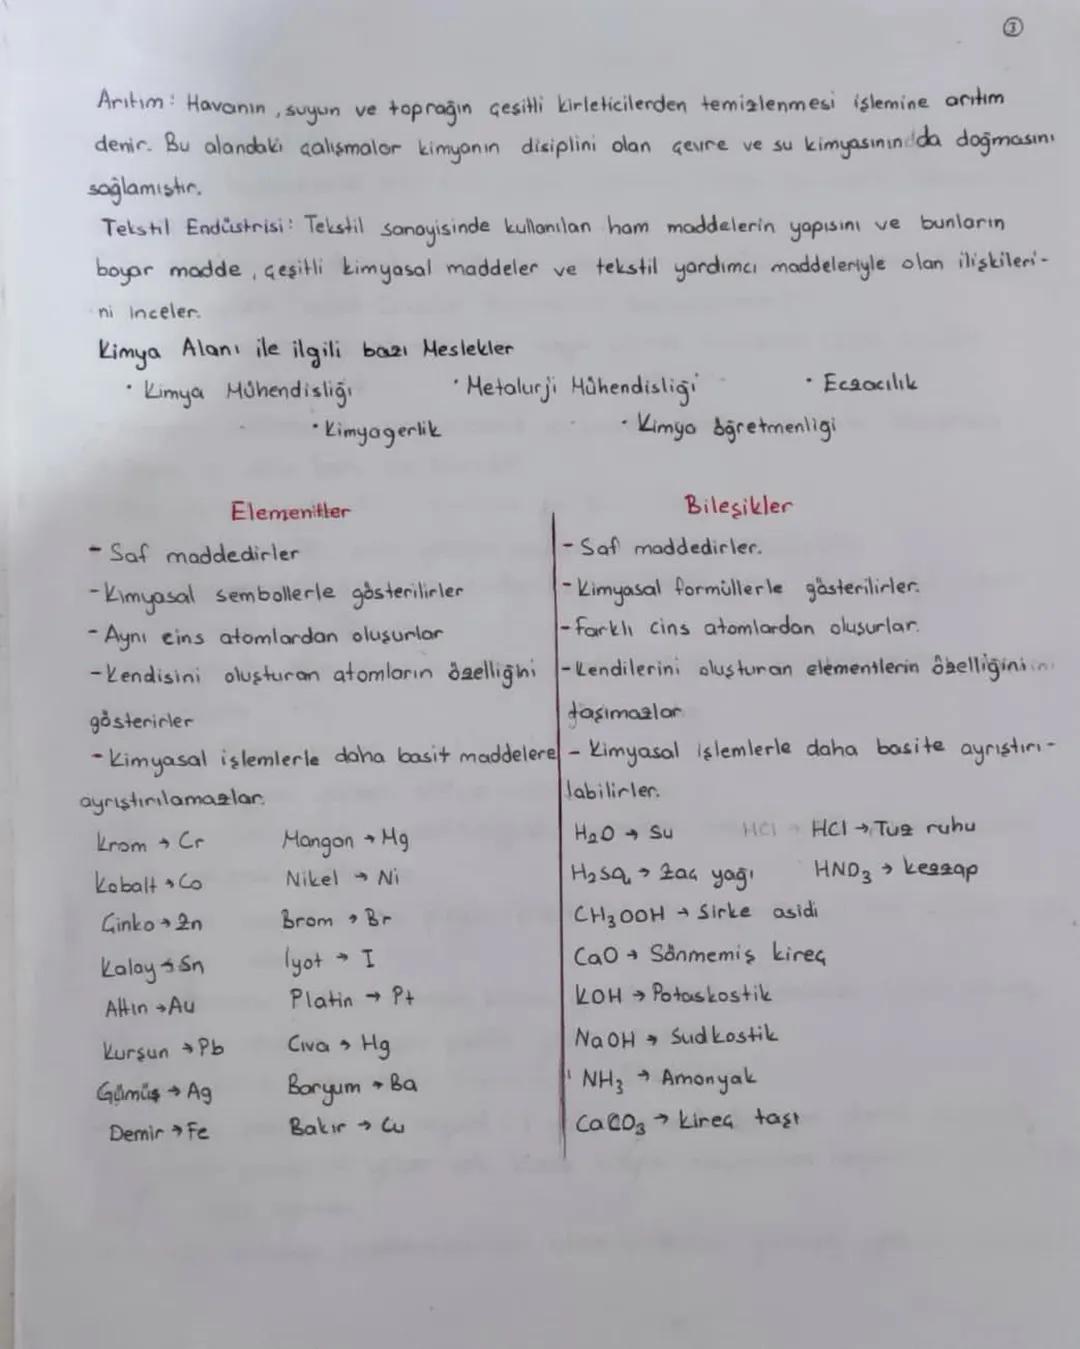 ③
Arıtım: Havanın, suyun ve toprağın çeşitli kirleticilerden temizlenmesi işlemine arıtım
denir. Bu alandaki çalışmalar kimyanın disiplini olan çevre ve su kimyasının da doğmasını
sağlamıştır.
Tekstil Endüstrisi: Tekstil sanayisinde kullanılan ham maddelerin yapısını ve bunların
boyar madde, çeşitli kimyasal maddeler ve tekstil yardımcı maddeleriyle olan ilişkileri-
ni inceler.
Kimya Alanı ile ilgili bazı Meslekler
• Kimya Mühendisliği • Metalurji Mühendisliği • Eczacılık
• Kimyagerlik • Kimya öğretmenligi
Elementler Bileşikler
- Saf maddedirler - Saf maddedirler.
- Kimyasal sembollerle gösterilirler - Kimyasal formüllerle gösterilirler.
- Aynı cins atomlardan oluşurlar - Farklı cins atomlardan oluşurlar.
- Kendisini oluşturan atomların özelliğini - Kendilerini oluşturan elementlerin özelliğini
gösterirler taşımazlar
- Kimyasal işlemlerle daha basit maddelere - Kimyasal işlemlerle daha basite ayrıştırı-
ayrıştırılamazlar. labilirler.
Krom → Cr Mangan → Mg H₂O → Su HCl → HCl → Tuz ruhu
Kobalt → Co Nikel → Ni H₂SO₄ → Zaç yağı HNO₃ → kezzap
Çinko → Zn Brom → Br CH₃OOH → Sirke asidi
Kalay → Sn İyot → I CaO → Sönmemiş kireç
Altın → Au Platin → Pt KOH → Potaskostik
Kurşun → Pb Cıva → Hg NaOH → Sudkostik
Gümüş → Ag Baryum → Ba NH₃ → Amonyak
Demir → Fe Bakır → Cu CaCO₃ → kireç taşı